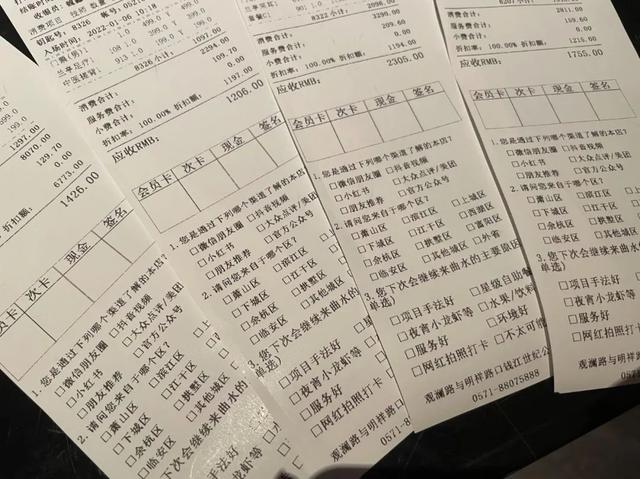 入场时间: 2022-01-06 10:18
8326 小计: 1097.00
消费合计: 2294.00
服务费合计: 109.70
小费合计: 0.00
折扣率: 100.00% 折扣额: 1197.00
应收RMB: 1206.00
会员卡 次卡 现金 签名
1. 您是通过下列哪个渠道了解的本店?
□微信朋友圈 □抖音视频
□小红书 □大众点评/美团
□朋友推荐 □官方公众号
2. 请问您来自于哪个区?
□萧山区 □滨江区
□下城区 □江干区
□余杭区 □拱墅区
□临安区 □其他城区
您下次会继续来曲水的
□项目手法好
□夜宵小龙虾等
□服务好
□网红拍照打卡
8070.00
129.70
0.00
折扣额: 6773.00
1426.00
员卡 次卡 现金 签名
1. 您是通过下列哪个渠道了解的本店?
□微信朋友圈 □抖音视频
□小红书 □大众点评/美团
□朋友推荐 □官方公众号
2. 请问您来自于哪个区?
□萧山区 □滨江区
□下城区 □江干区
□余杭区 □拱墅区
□临安区 □其他城区
下次会继续来曲水的
手法好
小龙虾等
拍照打卡
消费合计:
服务费合计: 209.60
小费合计: 0.00
折扣率: 100.00% 折扣额: 1194.00
应收RMB: 2305.00
会员卡 次卡 现金 签名
1. 您是通过下列哪个渠道了解的本店?
□微信朋友圈 □抖音视频
□小红书 □大众点评/美团
□朋友推荐 □官方公众号
2. 请问您来自于哪个区?
□萧山区 □滨江区 □上城区
□下城区 □江干区 □西湖区
□余杭区 □拱墅区 □富阳区
□临安区 □其他城区 □外省
3. 您下次会继续来曲水的主要原因
单选)
□项目手法好 □星级自助
□夜宵小龙虾等 □水果/饮料
□服务好 □环境好
□网红拍照打卡 □不太可能
观澜路与明祥路口钱江世纪公
0571-88075888
消费合计: 2811.00
服务费合计: 159.60
小费合计: 0.00
折扣率: 100.00% 折扣额: 1215.00
应收RMB: 1755.00
会员卡 次卡 现金 签名
1. 您是通过下列哪个渠道了解的本店?
□微信朋友圈 □抖音视频
□小红书 □大众点评/美团
□朋友推荐 □官方公众号
2. 请问您来自于哪个区?
□萧山区 □滨江区
□下城区 □江干区
□余杭区 □拱墅区
□临安区 □其他城区
3. 您下次会继续来曲水的主
单选)
□项目手法好
□夜宵小龙虾等
□服务好
□网红拍照打卡
观澜路与明祥路口
0571-8